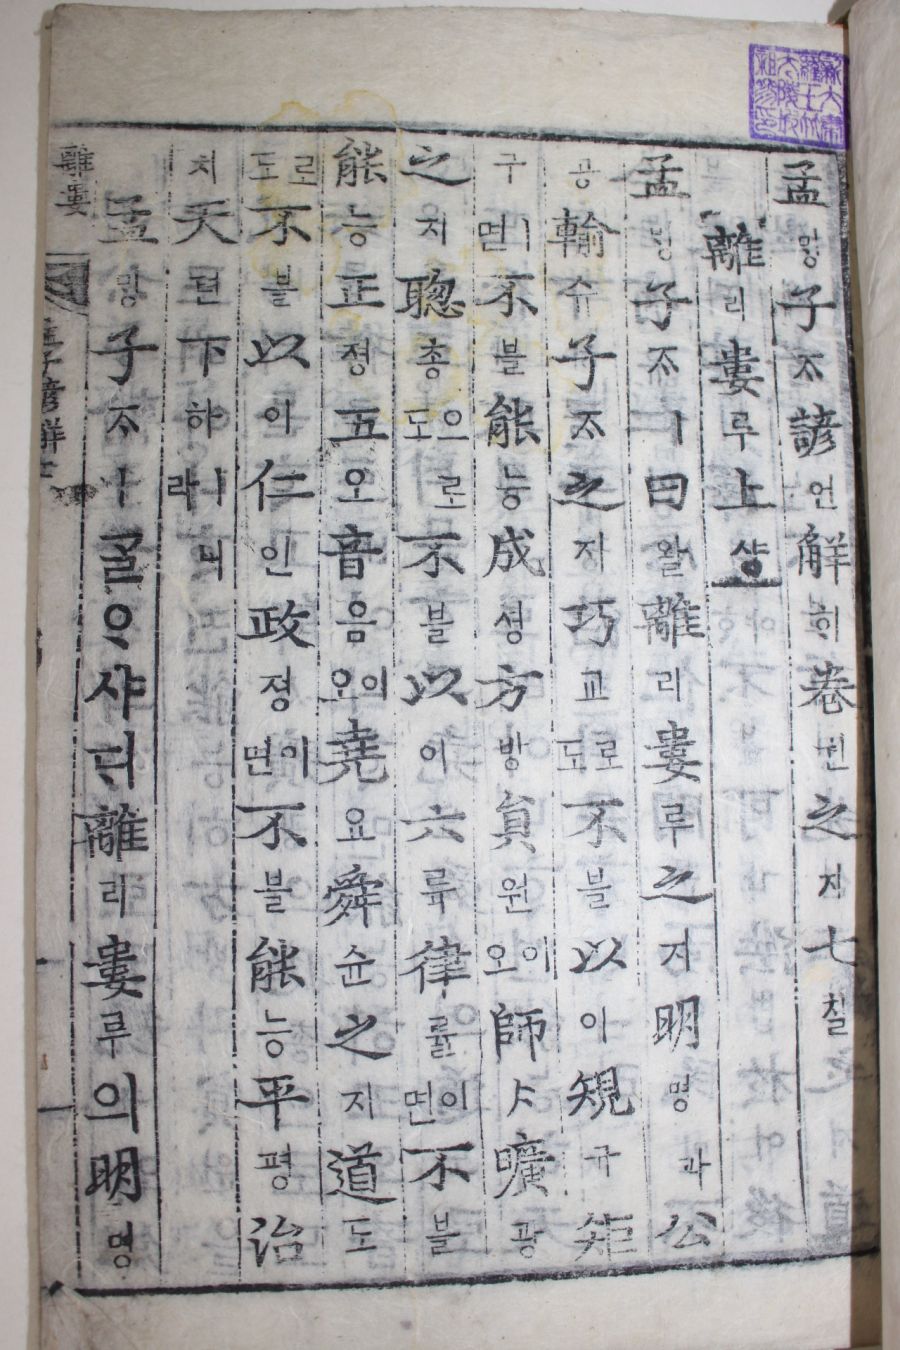 孟밍子ᄌᆞ諺언解ᄒᆡ卷권之지七칠
離리婁루上샹
孟밍子ᄌᆞㅣ曰왈離리婁루之지明명과公
공輸슈子ᄌᆞ之지巧교로도不블以이規규矩
구ㅣ면不블能능成셩方방員원이오師ᄉᆞ曠광
之지聰총으로도不블以이六륙律률이면不블
能능正졍五오音음이오堯요舜슌之지道도
로도不블以이仁인政졍이면不블能능平평治
치天텬下하ㅣ니라
孟ᄆᆡᆼ子ᄌᆞㅣᄀᆞᆯᄋᆞ샤ᄃᆡ離리婁루의明명
離婁
孟子諺解七